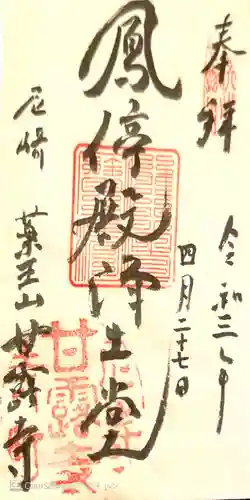 奉拝
令和三年
四月二十七日
鳳停殿浄土堂
尼崎 薬王山 甘露寺
甘露寺